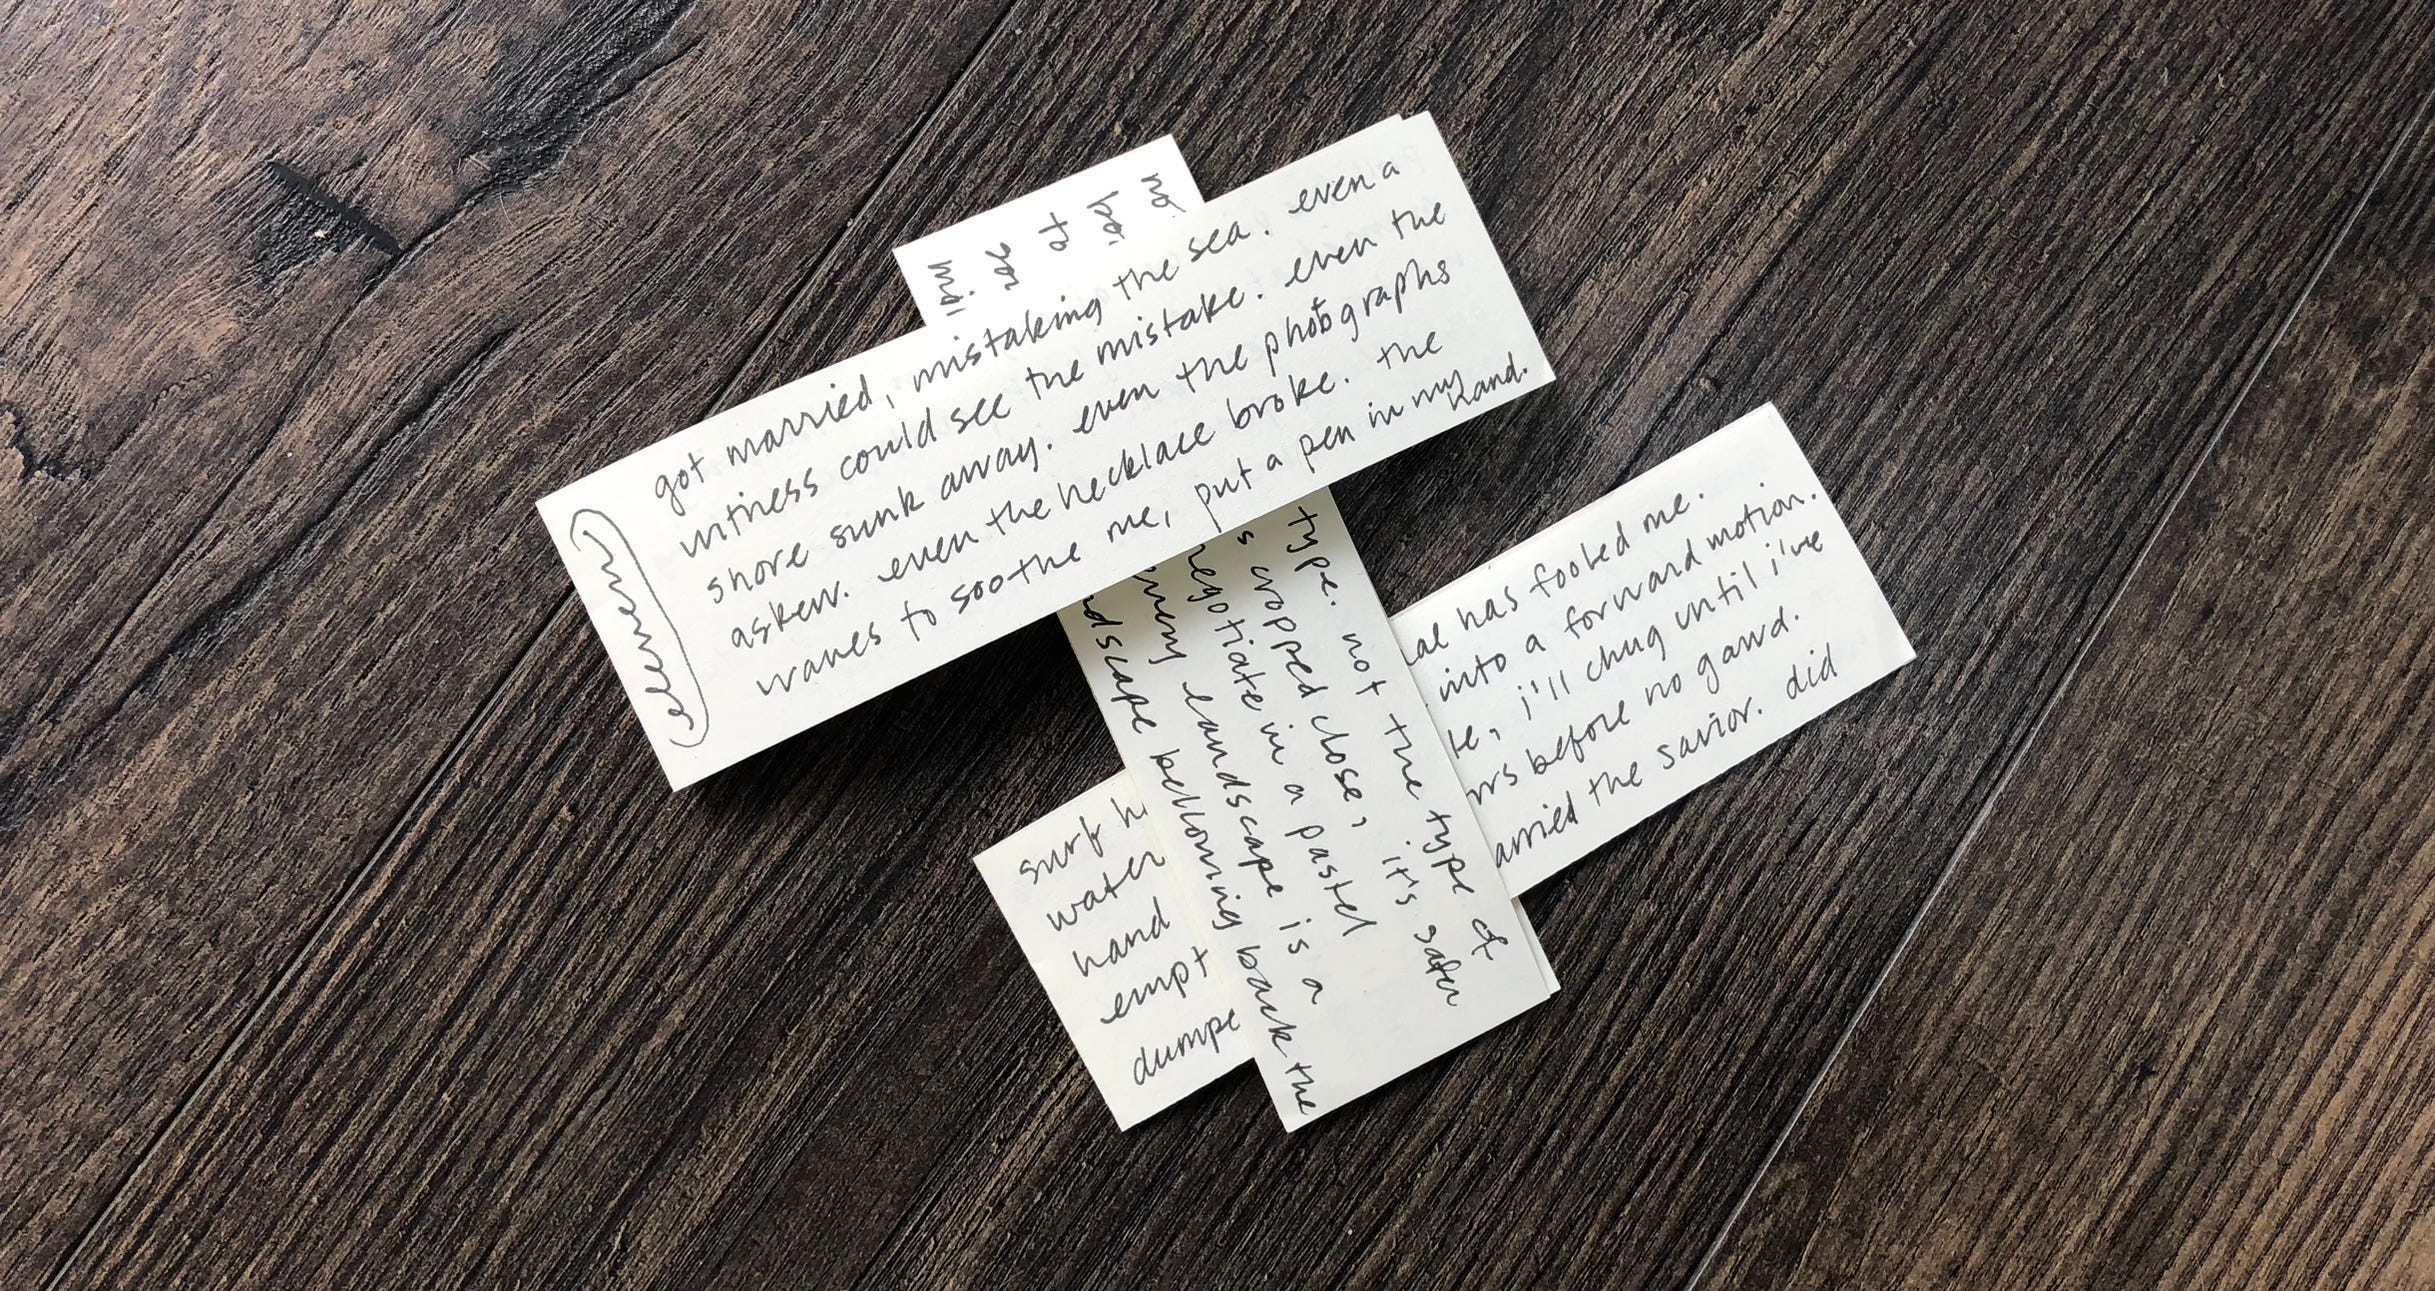 eleven
got married, mistaking the sea. even a
witness could see the mistake. even the
shore sunk away. even the photographs
askew. even the necklace broke. the
waves to soothe me, put a pen in my
hand.
type. not the type of
cropped close, it's safer
negotiate in a pastel
landscape is a
bellowing back the
has fooled me.
into a forward motion.
i'll chug until i've
before no gawd.
the savior. did
surf
water
hand